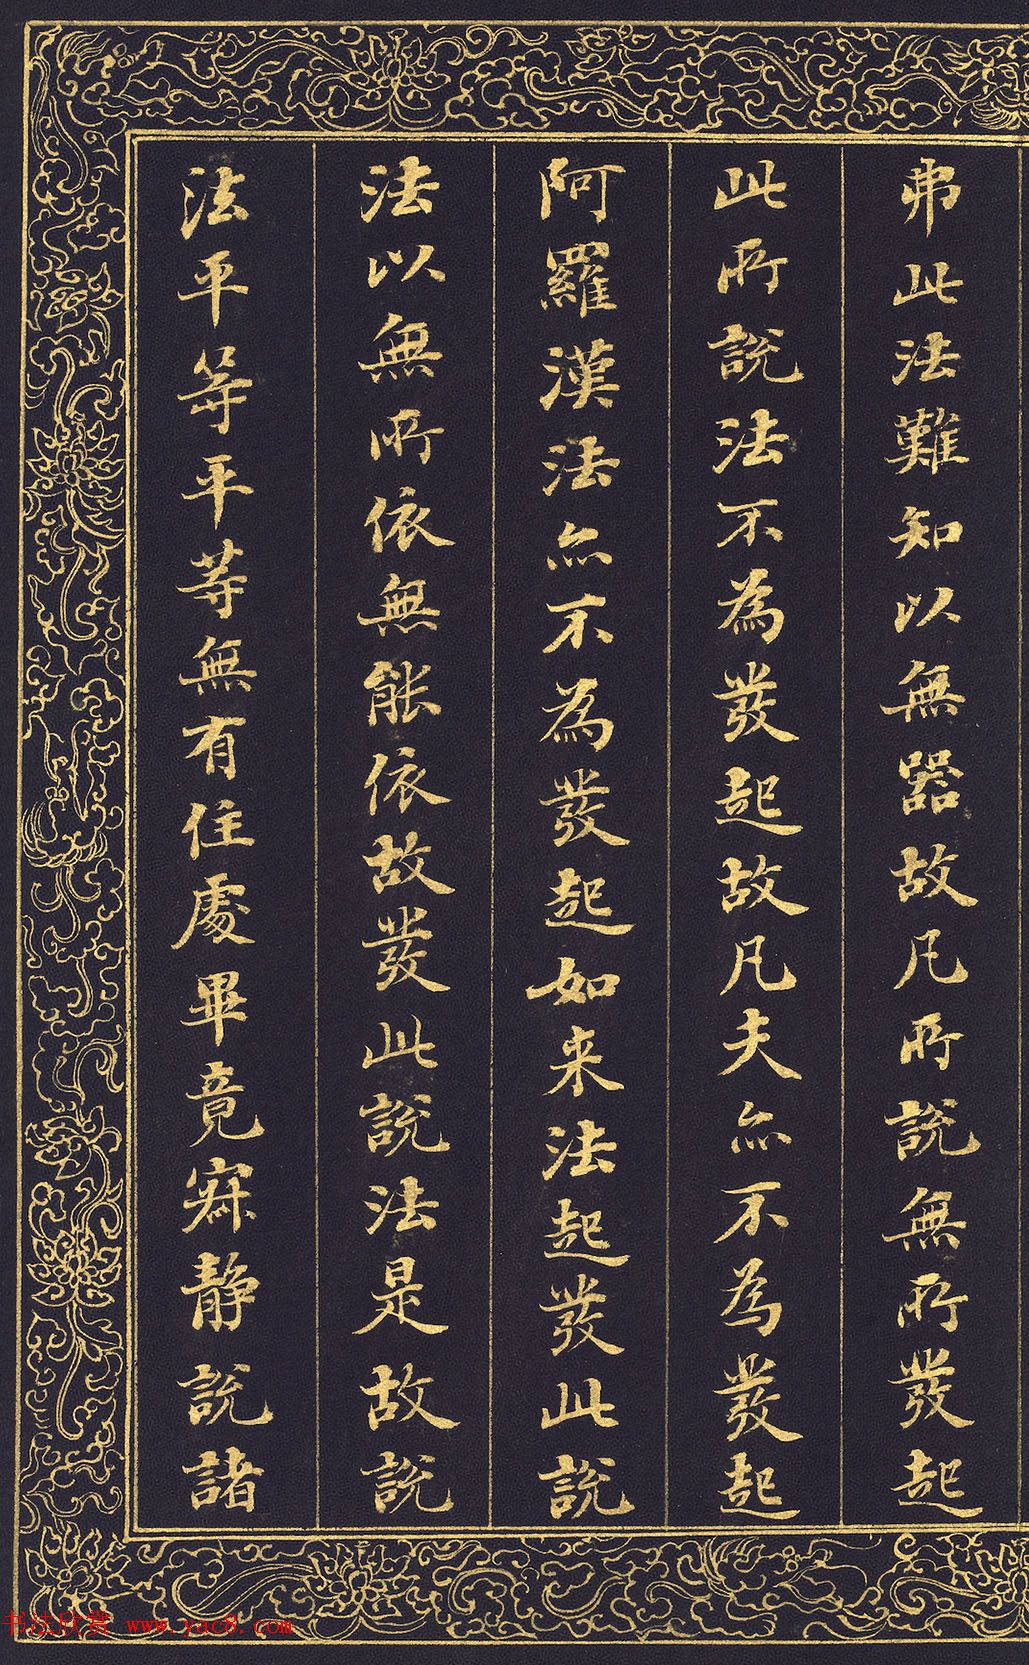 弗此法難知以無器故凡所說無所發起
此所說法不為發起故凡夫亦不為發起
阿羅漢法亦不為發起如来法起發此說
法以無所依無能依故發此說法是故說
法平等平等無有住處畢竟寂静說諸
书法欣赏 www.yac8.com